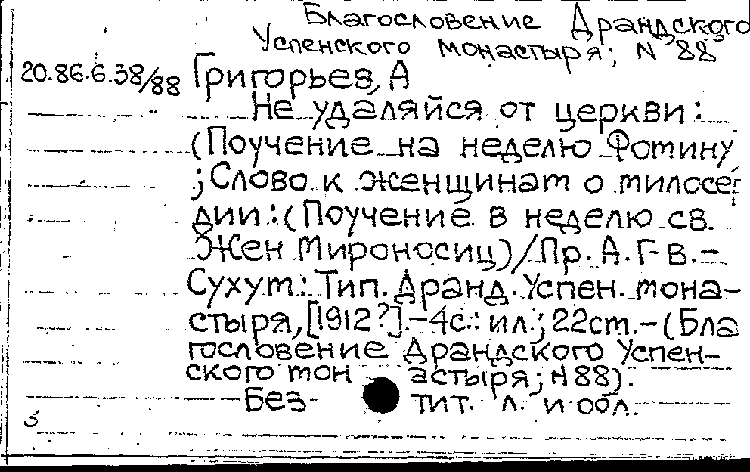 Благословение Драндского
Успенского монастыря; N 88
20.86.6.38/88 Григорьев, А
Не удаляйся от церкви:
(Поучение на неделю Фотину
; Слово к женщинам о милосер
дии: (Поучение в неделю св.
Жен Мироносиц)/Пр. А. Г-в.-
Сухум.: Тип. Дранд. Успен. мона-
стыря, [1912?].-4с.: ил.; 22см.-(Бла
гословение Драндского Успен-
ского монастыря; N 88).
Без тит. л. и обл.